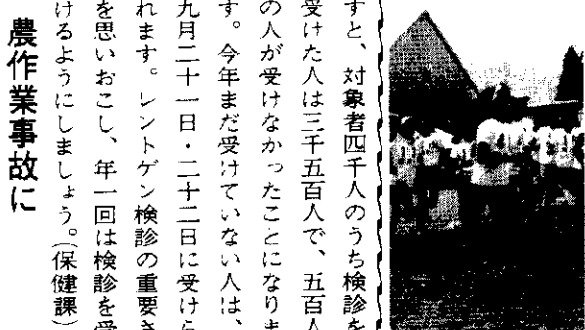 すと、対象者四千人のうち検診を
受けた人は三千五百人で、五百人
の人が受けなかったことになりま
す。今年まだ受けていない人は、
九月二十一日・二十二日に受けら
れます。レントゲン検診の重要さ
を思いおこし、年一回は検診を受
けるようにしましょう。(保健課)
農作業事故に